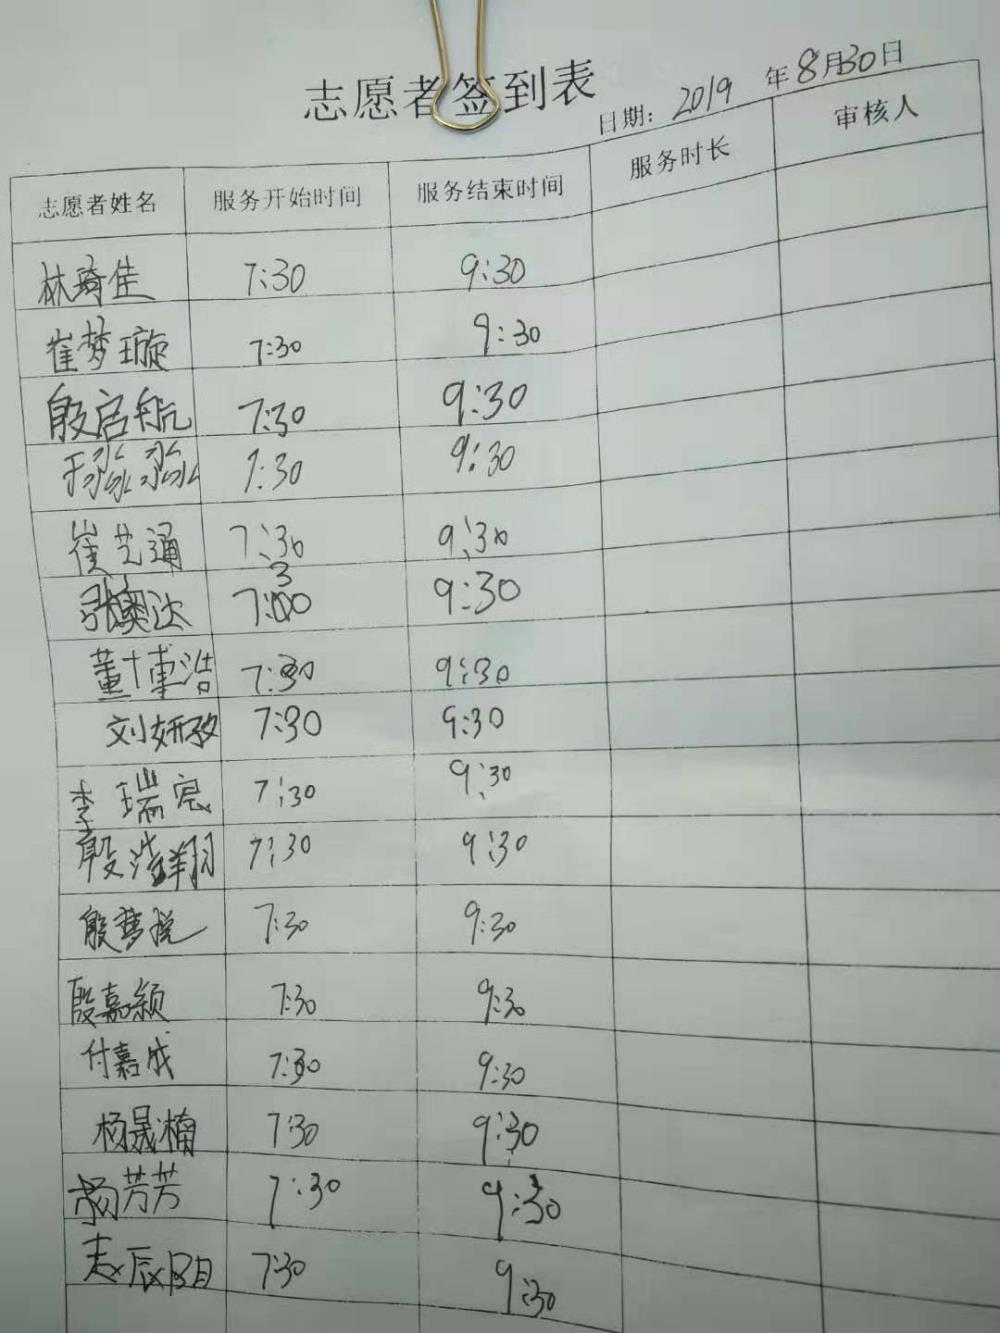 志愿者签到表
日期: 2019 年8月30日
志愿者姓名 服务开始时间 服务结束时间 服务时长 审核人
林琦佳 7:30 9:30
崔梦璇 7:30 9:30
殷启航 7:30 9:30
于淼淼 7:30 9:30
崔艺通 7:30 9:30
张奥达 7:30 9:30
董博浩 7:30 9:30
刘妍孜 7:30 9:30
李瑞亮 7:30 9:30
殷浩翔 7:30 9:30
殷梦悦 7:30 9:30
殷嘉颖 7:30 9:30
付嘉成 7:30 9:30
杨晟楠 7:30 9:30
杨芳芳 7:30 9:30
7:30 9:30